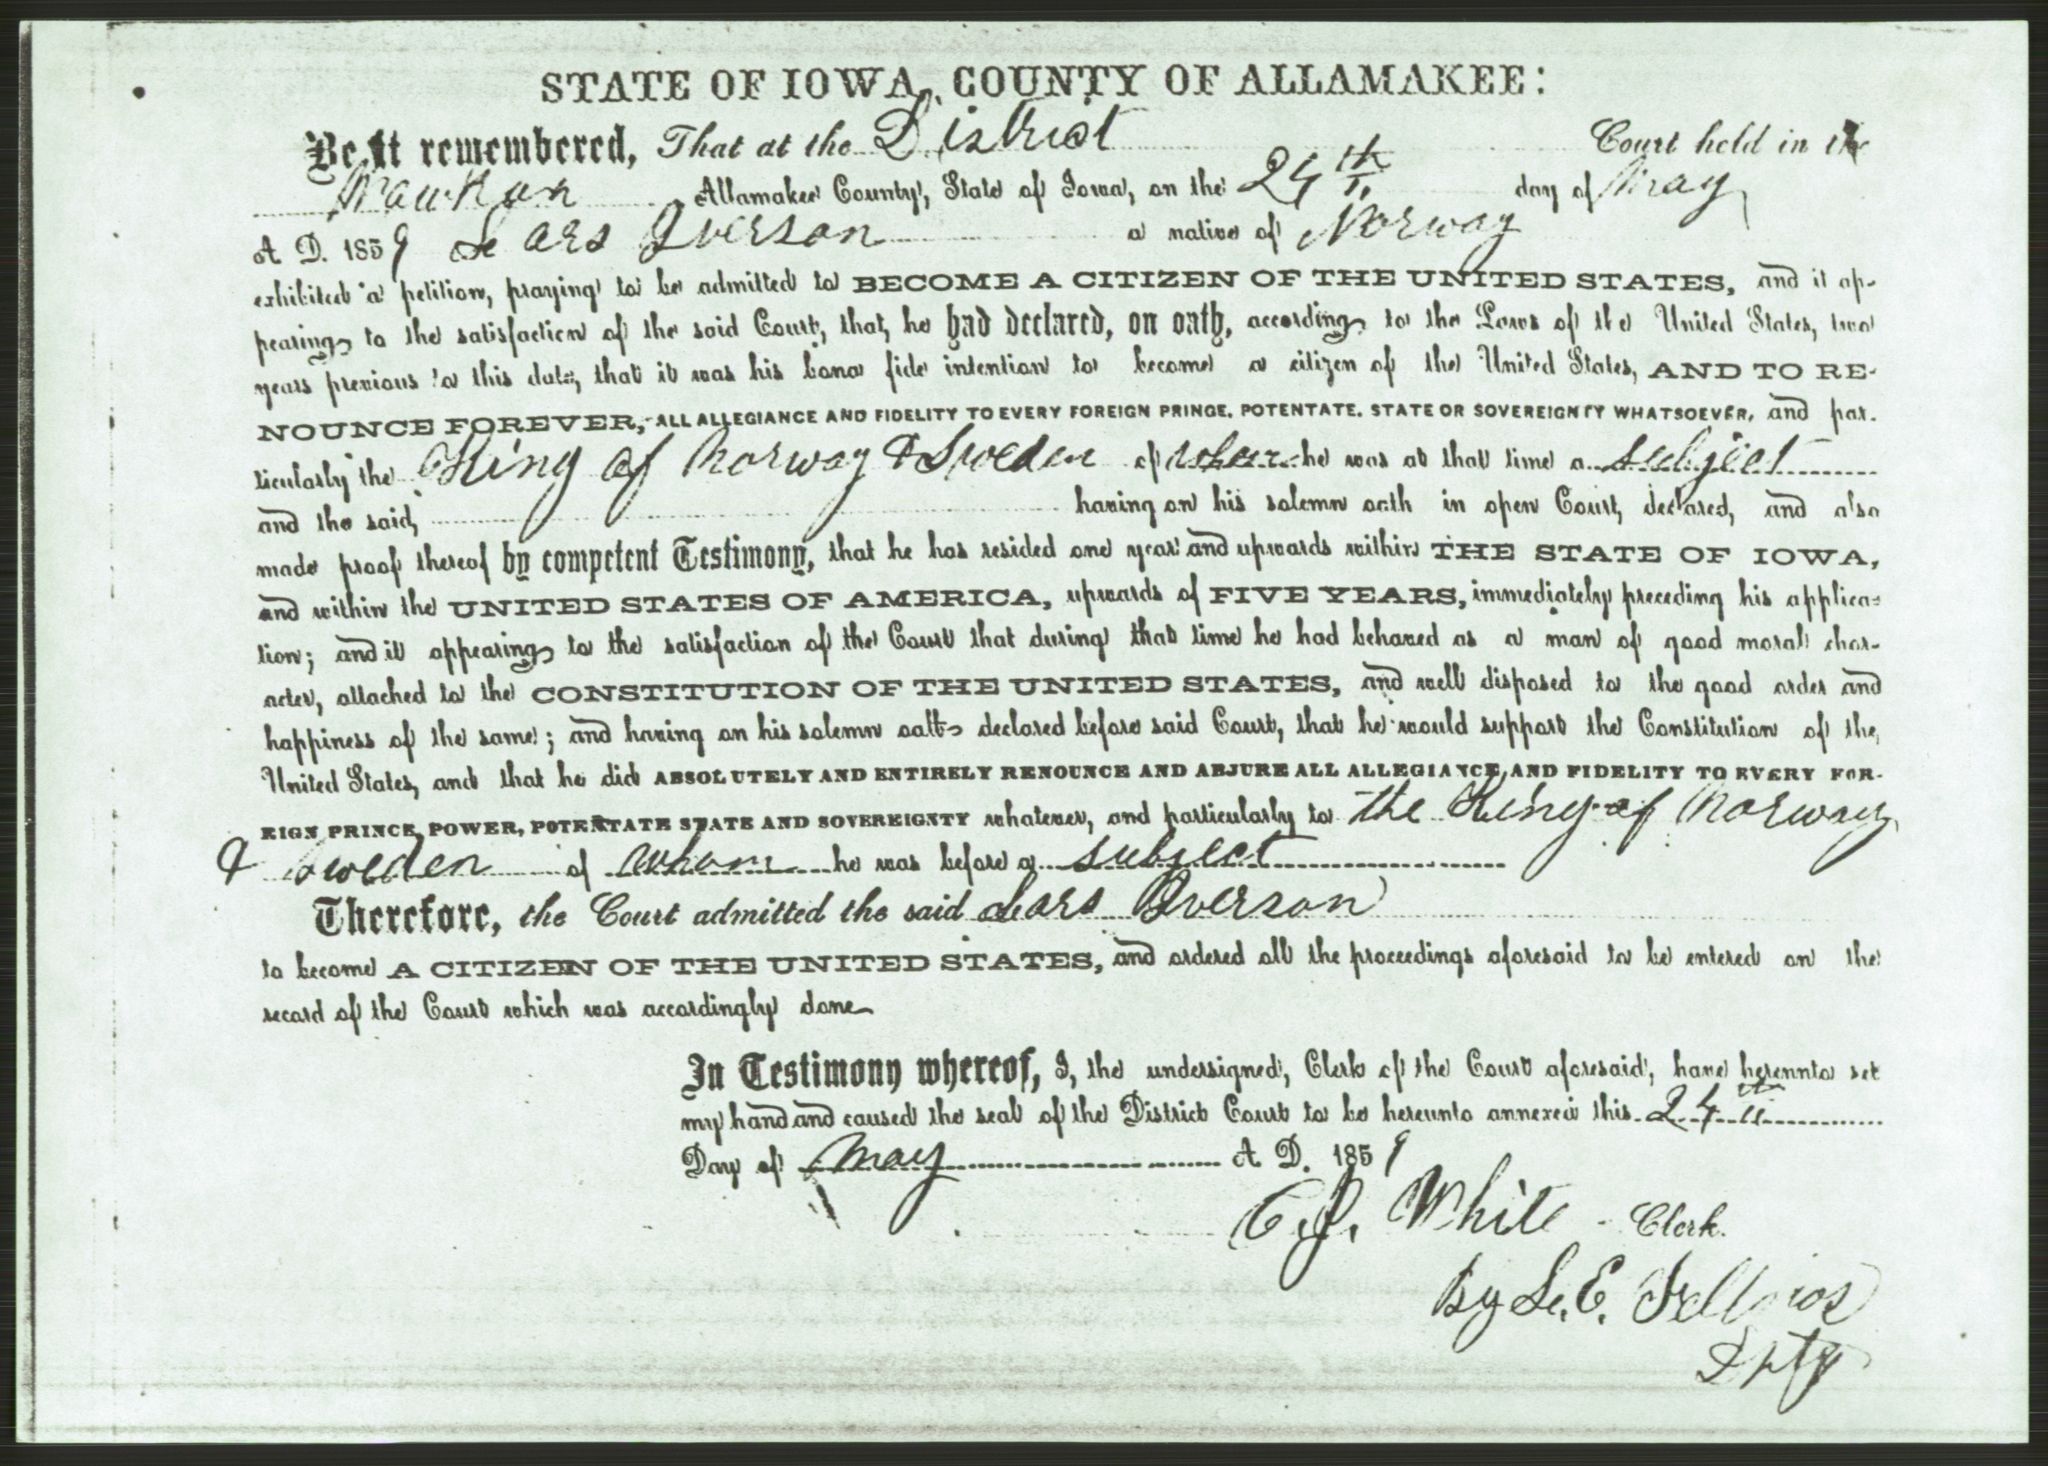 STATE OF IOWA, COUNTY OF ALLAMAKEE:
Be it remembered, That at the District Court held in the
Waukon Allamakee County, State of Iowa, on the 24th day of May
A. D. 1859 Lars Iverson a native of Norway
exhibited a petition, praying to be admitted to BECOME A CITIZEN OF THE UNITED STATES, and it ap-
pearing to the satisfaction of the said Court, that, he had declared, on oath, according to the Laws of the United States, two
years previous to this date, that it was his bona fide intention to become a citizen of the United States, AND TO RE-
NOUNCE FOREVER, ALL ALLEGIANCE AND FIDELITY TO EVERY FOREIGN PRINCE, POTENTATE, STATE OR SOVEREIGNTY WHATSOEVER, and par-
ticularly the King of Norway & Sweden of whom he was at that time a subject
and the said, having on his solemn oath in open Court, declared, and also
made proof thereof by competent Testimony, that he has resided one year and upwards within THE STATE OF IOWA,
and within the UNITED STATES OF AMERICA, upwards of FIVE YEARS, immediately preceding his applica-
tion; and it appearing to the satisfaction of the Court that during that time he had behaved as a man of good moral char-
acter, attached to the CONSTITUTION OF THE UNITED STATES, and well disposed to the good order and
happiness of the same; and having on his solemn oath declared before said Court, that he would support the Constitution of the
United States, and that he did ABSOLUTELY AND ENTIRELY RENOUNCE AND ABJURE ALL ALLEGIANCE AND FIDELITY TO EVERY FOR-
EIGN PRINCE, POWER, POTENTATE STATE AND SOVEREIGNTY whatever, and particularly to the King of Norway
& Sweden of whom he was before a subject
Therefore, the Court admitted the said Lars Iverson
to become A CITIZEN OF THE UNITED STATES, and ordered all the proceedings aforesaid to be entered on the
record of the Court which was accordingly done
In Testimony whereof, I, the undersigned, Clerk of the Court aforesaid, have herennto set
my hand and caused the seal of the District Court to be hereunto annexed this 24th
Day of May A. D. 1859
C. J. White Clerk.
By L. E. Fellows
Dpty